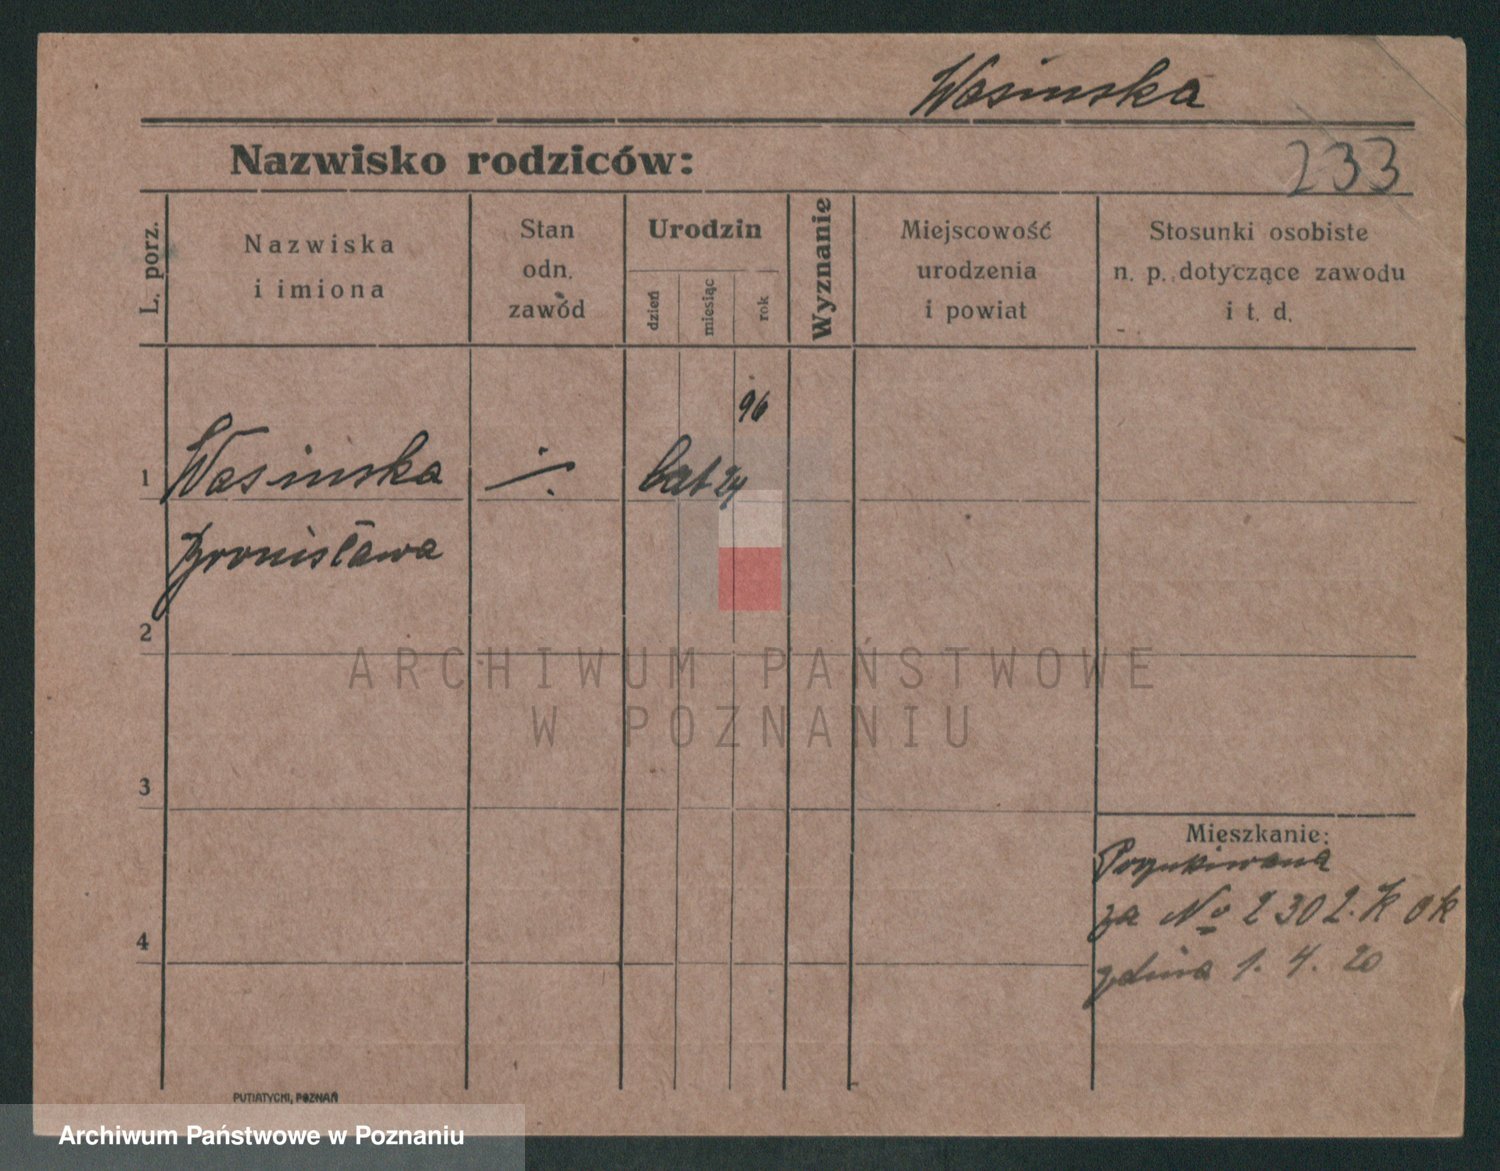 Wasinska
Nazwisko rodziców:
233
L. porz.
Nazwiska
i imiona
Stan
odn.
zawód
Urodzin
dzień
miesiąc
rok
Wyznanie
Miejscowość
urodzenia
i powiat
Stosunki osobiste
n. p. dotyczące zawodu
i t. d.
96
1
Wasinska
lat 24
Bronisława
2
ARCHIWUM PAŃSTWOWE
W POZNANIU
3
Mieszkanie:
Poszukiwana
za No 2302. K
4
1. 4. 20
PUTIATYCKI, POZNAŃ
Archiwum Państwowe w Poznaniu